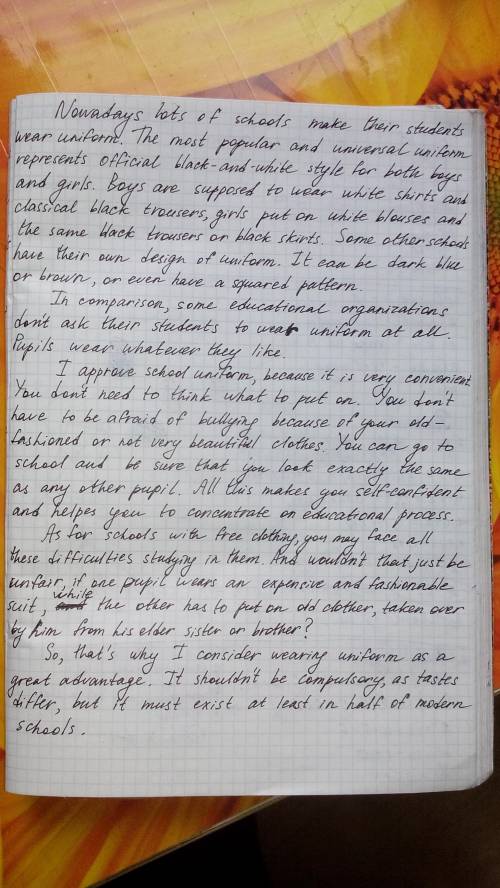 Nowadays lots of schools make their students
wear uniform. The most popular and universal uniform
represents official black-and-white style for both boys
and girls. Boys are supposed to wear white shirts and
classical black trousers, girls put on white blouses and
the same black trousers or black skirts. Some other schools
have their own design of uniform. It can be dark blue
or brown, or even have a squared pattern.
In comparison, some educational organizations
don't ask their students to wear uniform at all.
Pupils wear whatever they like.
I approve school uniform, because it is very convenient.
You don't need to think what to put on. You don't
have to be afraid of bullying because of your old-
fashioned or not very beautiful clothes. You can go to
school and be sure that you look exactly the same
as any other pupil. All this makes you self-confident
and helpes you to concentrate on educational process.
As for schools with free clothing, you may face all
these difficulties studying in them. And wouldn't that just be
unfair, if one pupil wears an expensive and fashionable
suit, while the other has to put on old clother, taken over
by him from his elder sister or brother?
So, that's why I consider wearing uniform as a
great advantage. It shouldn't be compulsory, as tastes
differ, but it must exist at least in half of modern
schools.